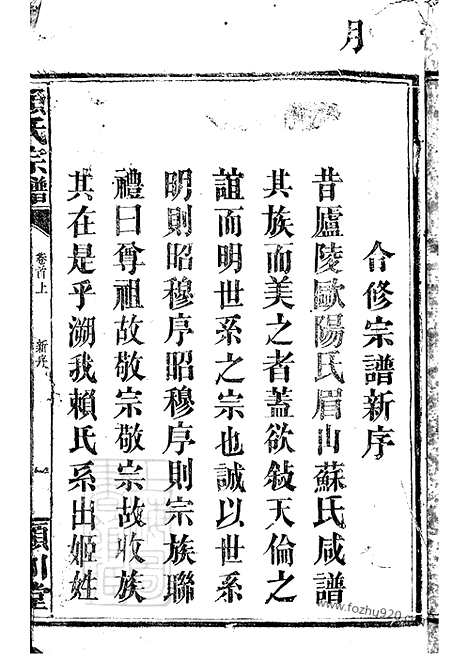 月
合修宗譜新序
昔廬陵歐陽氏眉山蘇氏咸譜
其族而美之者蓋欲敍天倫之
誼而明世系之宗也誠以世系
明則昭穆序昭穆序則宗族聯
禮曰尊祖故敬宗敬宗故收族
其在是乎溯我賴氏系出姬姓
氏宗譜
卷首上
新序
一
川堂
www.fozhu920.com